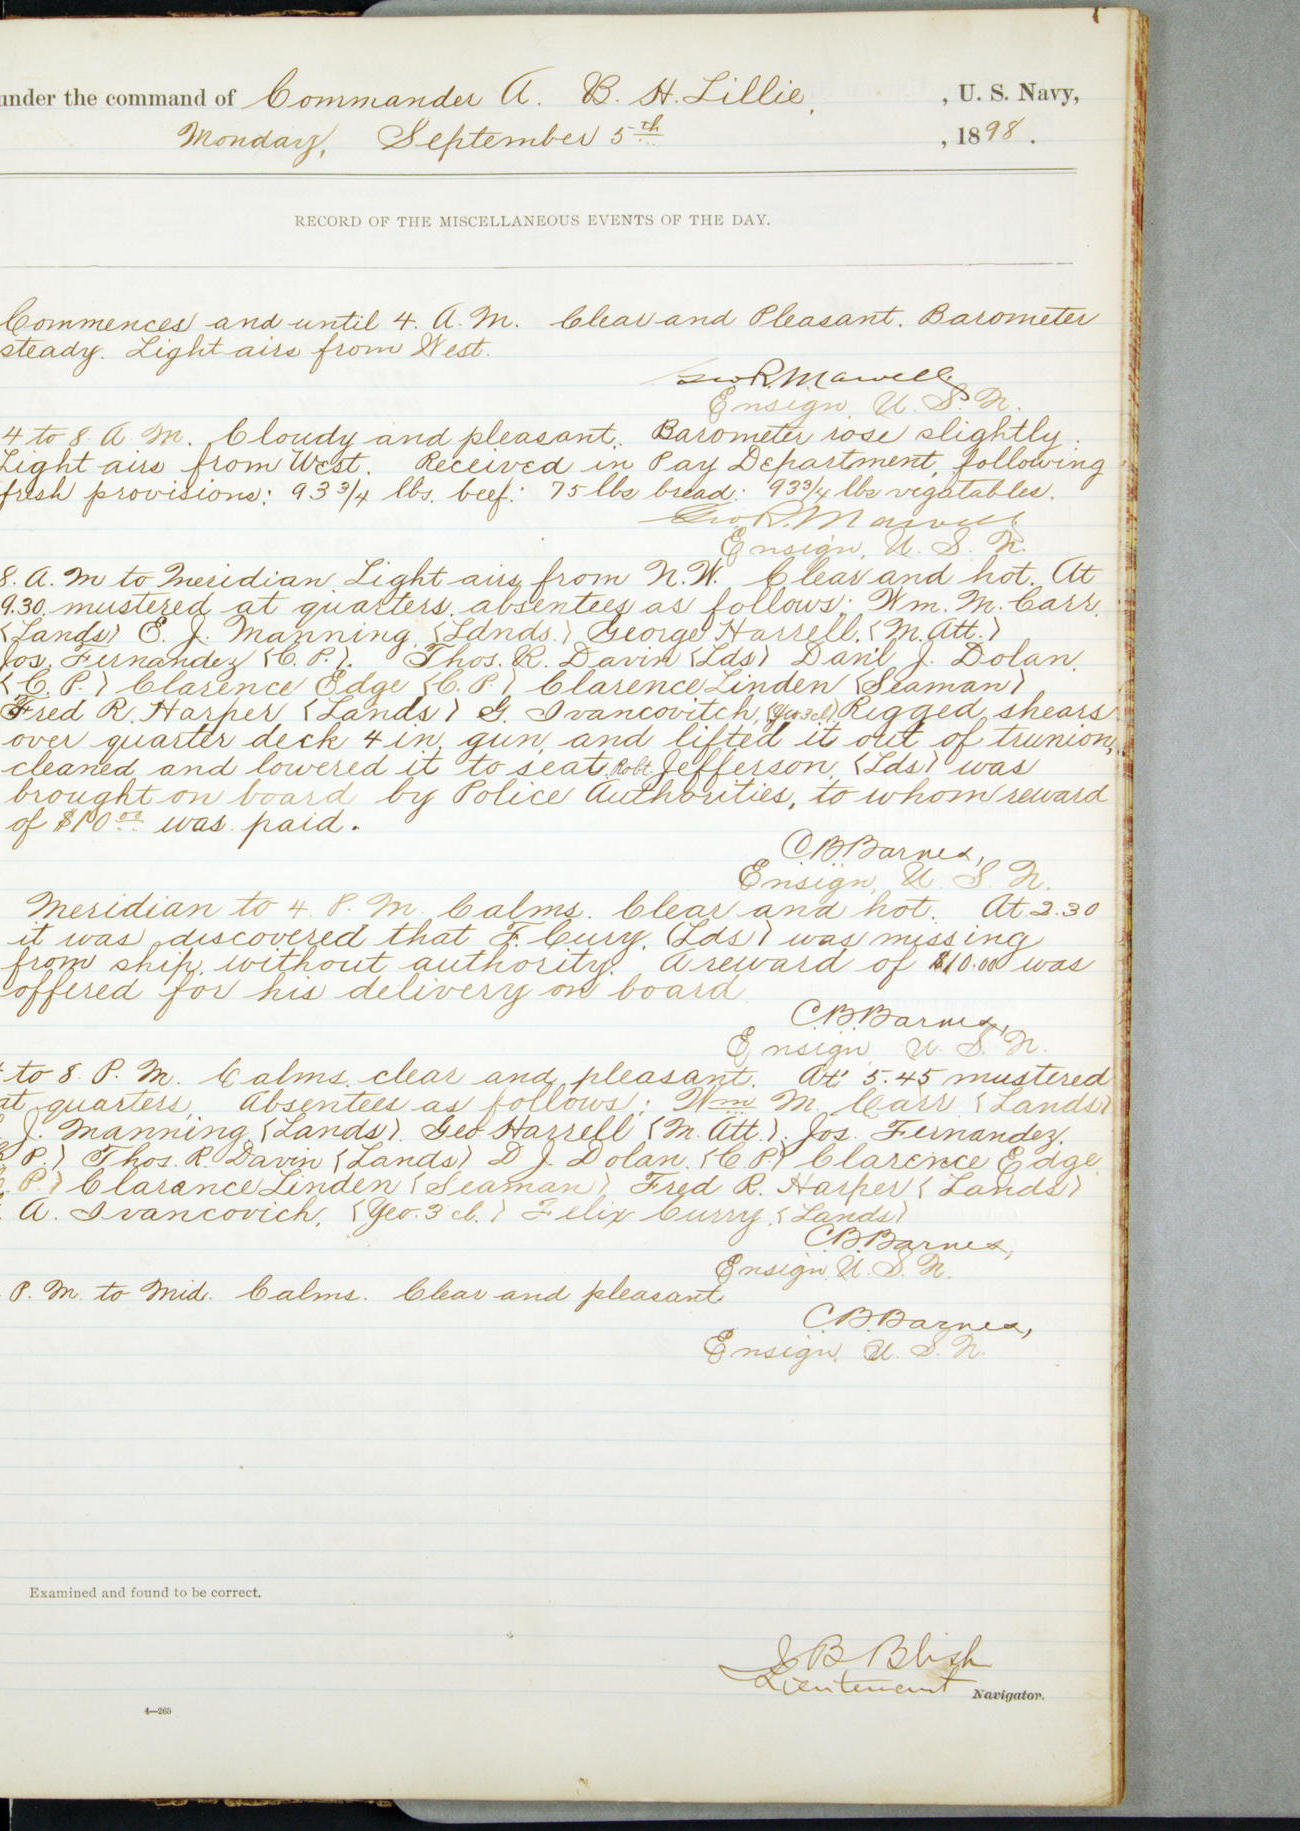 under the command of Commander A. B. H. Lillie, , U. S. Navy,
Monday, September 5th , 1898.
RECORD OF THE MISCELLANEOUS EVENTS OF THE DAY.
Commences and until 4. A. M. Clear and Pleasant. Barometer
steady. Light airs from West.
Geo R. Marvell
Ensign, U. S. N.
4 to 8. A. M. Cloudy and pleasant. Barometer rose slightly.
Light airs from West. Received in Pay Department, following
fresh provisions: 93 3/4 lbs. beef: 75 lbs bread: 93 3/4 lbs vegatables.
Geo. R. Marvell
Ensign, U. S. N.
8. A. M to Meridian Light airs from N.W. Clear and hot. At
9.30. mustered at quarters. absentees as follows: Wm. M. Carr.
(Lands) E. J. Manning. (Ldnds.) George Harrell. (M. Att.)
Jos. Fernandez (C. P.). Thos. R. Davin (Lds) Dan'l J. Dolan.
(C. P.) Clarence Edge (C. P.) Clarence Linden (Seaman)
Fred R. Harper (Lands) G. Ivancovitch, (Yeo 3 cl) Rigged shears
over quarter deck 4 in. gun, and lifted it out of trunion,
cleaned and lowered it to seat. Robt. Jefferson, (Lds) was
brought on board by Police Authorities, to whom reward
of $10 00 was paid.
C B Barnes,
Ensign, U. S. N.
Meridian to 4. P. M. Calms. Clear and hot. At 2.30
it was discovered that F. Cury. (Lds) was missing
from ship, without authority. A reward of $10.00 was
offered for his delivery on board
C. B. Barnes,
Ensign, U. S. N.
to 8. P. M. Calms, clear and pleasant. At 5.45 mustered
at quarters, Absentees as follows: Wm M. Carr (Lands)
J. Manning (Lands). Geo Harrell (M. Att.). Jos. Fernandez.
P.) Thos. R. Davin (Lands) D J. Dolan. (C. P.) Clarence Edge
P.) Clarance Linden (Seaman) Fred R. Harper (Lands)
A. Ivancovich, (Yeo. 3 cl.) Felix Curry (Lands)
C. B. Barnes,
Ensign U. S. N.
P. M. to Mid. Calms. Clear and pleasant
C. B. Barnes,
Ensign, U. S. N.
Examined and found to be correct.
J B Blish
Lieutenant Navigator.
4—265